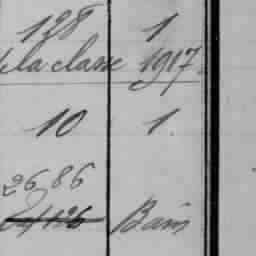 128 1
de la classe 1917.
10 1.
26,86
Bains